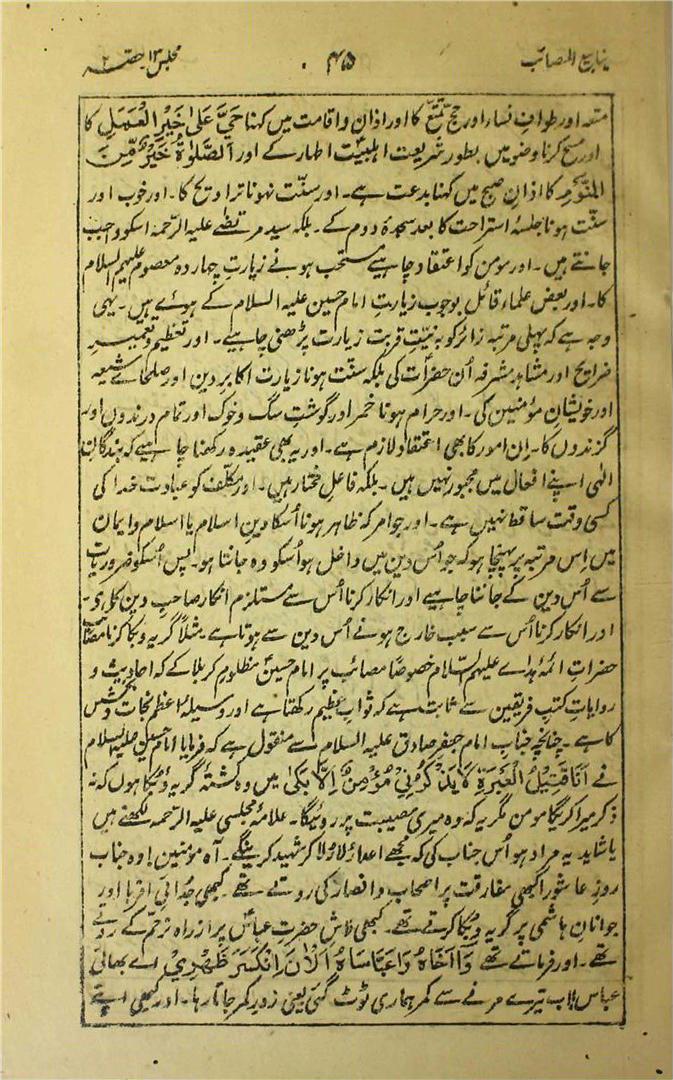 ینابیع المصائب ۴۵ مجلس ۱۳ حصہ ۲
متعہ اور طوافِ نساء اور حج تمتّع کا اور اذان و اقامت میں کہنا حَیَّ عَلیٰ خَیْرِ الْعَمَلِ کا
اور مسح کرنا وضو میں بطور شریعت اہلبیت اطہار کے اور اَلصَّلوٰۃُ خَیْرٌ مِّنَ
النَّوْمِ کا اذانِ صبح میں کہنا بدعت ہے۔ اور سنّت نہونا تراویح کا۔ اور خوب اور
سنّت ہونا جلسۂ استراحت کا بعد سجدۂ دوم کے۔ بلکہ سید مرتضےٰ علیہ الرّحمہ اسکو واجب
جانتے ہیں۔ اور مومن کو اعتقاد چاہیے مستحب ہونے زیارتِ چہاردہ معصوم علیہم السلام
کا۔ اور بعض علماء قائل بوجوب زیارتِ امام حسین علیہ السلام کے ہوئے ہیں۔ یہی
وجہ ہے کہ پہلی مرتبہ زائر کو بہ نیّتِ قربت زیارت پڑھنی چاہیے۔ اور تعظیم و تعمیر
ضرایح اور مشاہد مشرفہ اُن حضرات کی بلکہ سنّت ہونا زیارت اکابرِ دین اور صلحائے شیعہ
اور خویشانِ مؤمنین کی۔ اور حرام ہونا خمر اور گوشتِ سگ و خوک اور تمام درندوں اور
گزندوں کا۔ اِن امور کا بھی اعتقاد لازم ہے۔ اور یہ بھی عقیدہ رکھنا چاہیے کہ بندگان
الٰہی اپنے افعال میں مجبور نہیں ہیں۔ بلکہ فاعلِ مختار ہیں۔ اور مکلّف کو عبادت خدا کی
کسی وقت ساقط نہیں ہے۔ اور جو امر کہ ظاہر ہونا اُسکا دین اسلام یا اسلام و ایمان
میں اِس مرتبہ پر پہنچا ہو کہ جو اُس دین میں داخل ہو اُسکو وہ جانتا ہو۔ پس اُسکو ضروریات
سے اُس دین کے جاننا چاہیے اور انکار کرنا اُس سے مستلزم انکار صاحبِ دین کا ہے۔
اور انکار کرنا اُس سے سبب خارج ہونے اُس دین سے ہوتا ہے۔ مثلاً گریہ و بکا کرنا مصائب
حضراتِ ائمۂ ہداے علیہم السّلام خصوصاً مصائب پر امام حسینؑ مظلومِ کربلا کے کہ احادیث و
روایاتِ کتب فریقین سے ثابت ہے کہ ثواب عظیم رکھتا ہے اور وسیلۂ اعظم نجات و بخشش
کا ہے۔ چنانچہ جناب امام جعفر صادق علیہ السلام سے منقول ہے کہ فرمایا امام حسین علیہ السلام
نے اَنَا قَتِیْلُ الْعَبْرَۃِ لَا یَذْکُرُنِیْ مُؤْمِنٌ اِلَّا بَکیٰ میں وہ کشتۂ گریہ و بُکا ہوں کہ نہ
ذکر میرا کریگا مومن مگر یہ کہ وہ میری مصیبت پر روئیگا۔ علامۂ مجلسی علیہ الرّحمہ لکھتے ہیں
یا شاید یہ مراد ہو اُس جناب کی کہ مجھے اعدا رُلا رُلا کر شہید کرینگے۔ آہ مؤمنین! وہ جناب
روزِ عاشورا کبھی مفارقت پر اصحاب و انصار کی روتے تھے۔ کبھی جُدائی اقربا اور
جوانانِ ہاشمی پر گریہ و بُکا کرتے تھے۔ کبھی لاشِ حضرت عباسؑ پر از راہِ ترحّم کے روتے
تھے۔ اور فرماتے تھے وَا اَخَاہُ وَا عَبَّاسَاہُ اَلْاٰنَ اِنْکَسَرَ ظَھْرِیْ اے بھائی
عباسؑ اب تیرے مرنے سے کمر ہماری ٹوٹ گئی یعنی زورِ کمر جاتا رہا۔ اور کبھی اپنے